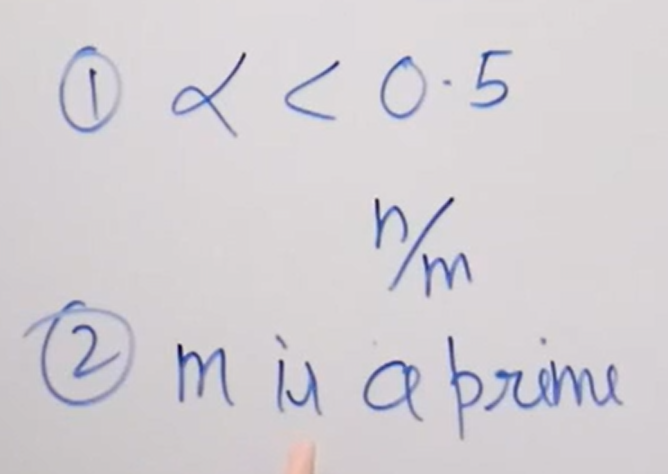 ① α < 0.5
n/m
② m is a prime